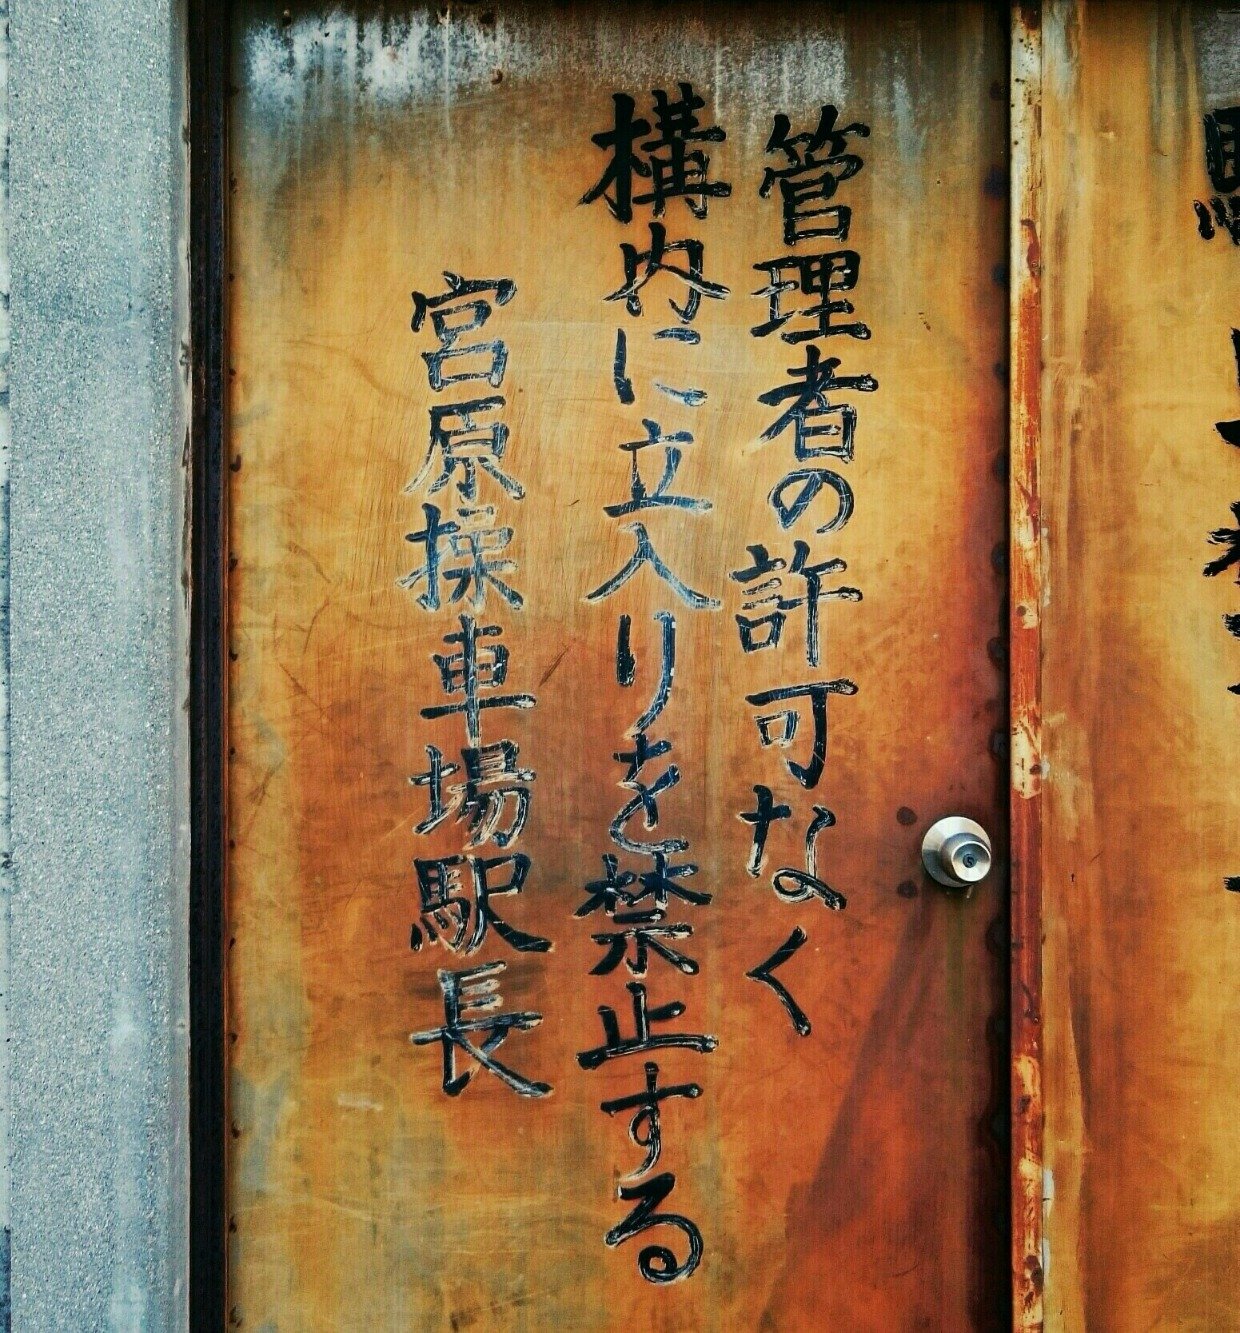 管理者の許可なく
構内に立入りを禁止する
宮原操車場駅長